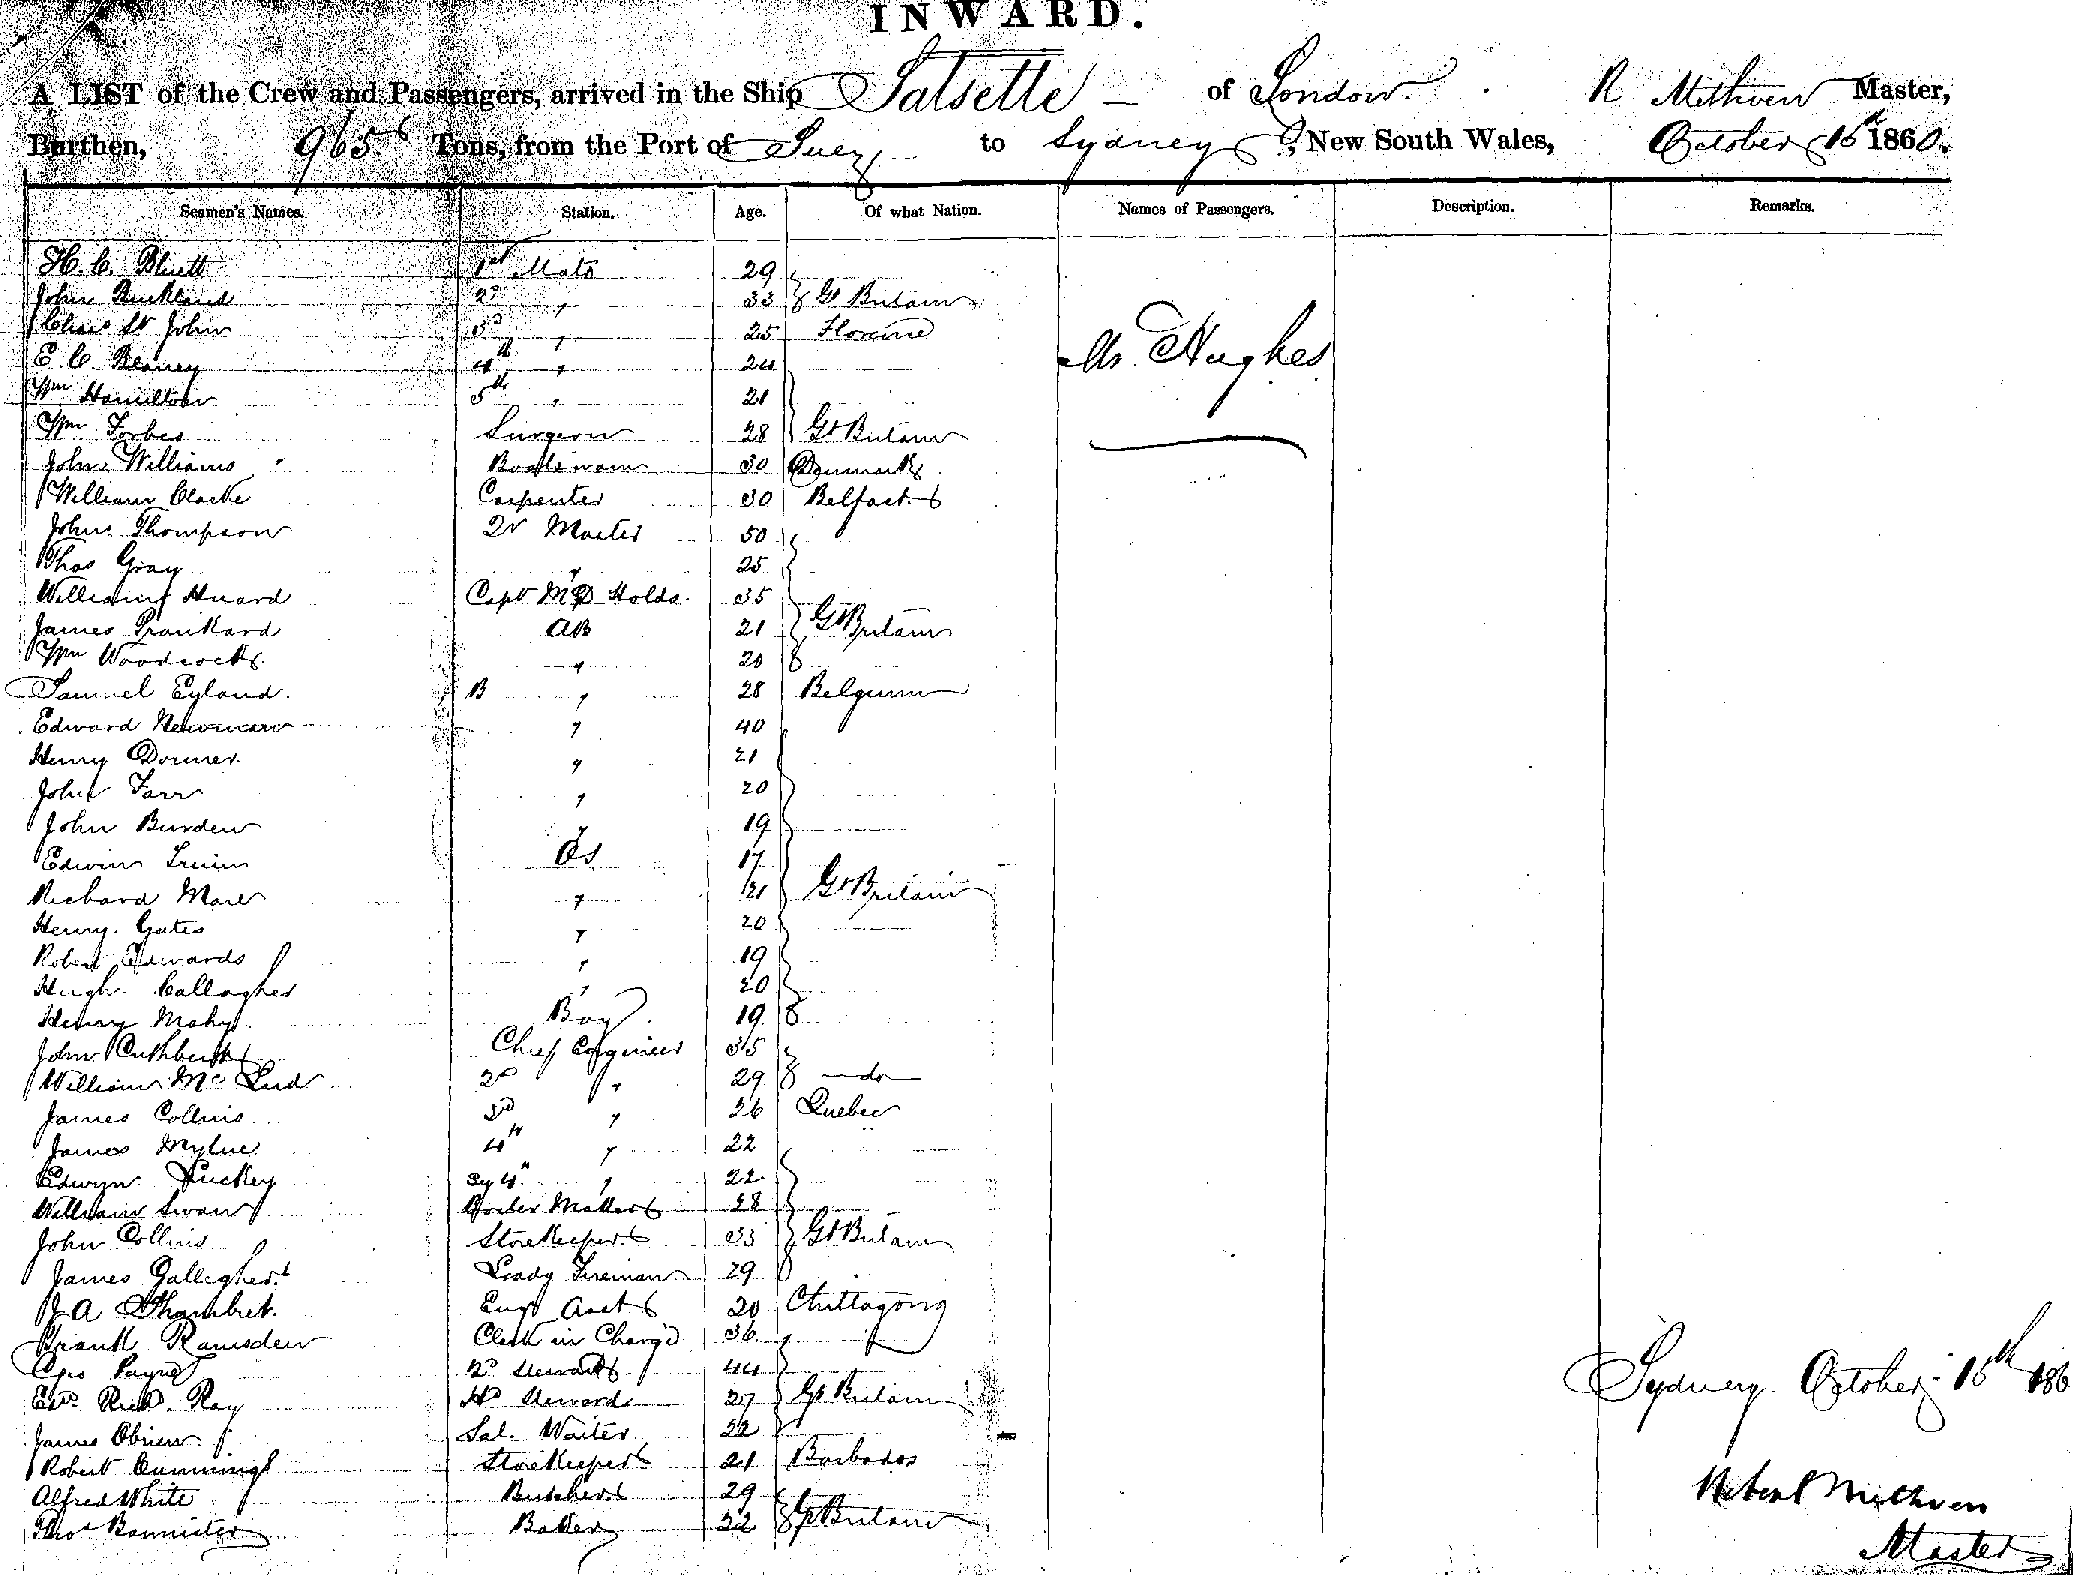 INWARD.
A LIST of the Crew and Passengers, arrived in the Ship Salsette of London. R Methven Master,
Burthen, 965 Tons, from the Port of Suez to Sydney, New South Wales, October 15th 1860.
Seamen's Names. Station. Age. Of what Nation. Names of Passengers. Description. Remarks.
H. C. Bluett 1st Mate 29
John Buckland 2d " 33 Gt Britain
Chas St John 3d " 25
E C Blaney 4th " 24 Mr. Hughes
Wm Hamilton 5th " 21
Wm Forbes Surgeon 28 Gt Britain
John Williams Boatswain 30 Denmark
William Clarke Carpenter 30 Belfast
John Thompson Qr Master 50
Thos Gray " 25
William Huard Capt M D Holds 35
James Prankard AB 21 Gt Britain
Wm Woodcock " 20
Samuel Eyland B " 28 Belgium
Edward Newman " 40
Henry Dormer " 21
John Farr " 20
John Burden " 19
Edwin Os 17
Richard More " 21 Gt Britain
Henry Gates " 20
Robert Edwards " 19
Hugh Callagher " 20
Henry Mahy Boy 19
John Cuthbert Chief Engineer 35
William Mc 2d " 29 do
James Collins 3d " 26 Quebec
James Mylne 4th " 22
Edwyn Luckey 4th " 22
William Swan Boiler Maker 28
John Collins Storekeeper 33 Gt Britain
James Gallegher Leadg Fireman 29
J A Engr Asst 20 Chittagong
Frank Ramsden Clerk in Charge 36
Geo Payne Steward 44 Sydney October 15th 186
Edwd Richd Ray Steward 27 Gt Britain
James Obrien Sal. Waiter 22
Robert Cumming Storekeeper 21 Barbados
Alfred White Butcher 29 Robert Methven
Thos Bannister Baker 22 Gt Britain
Master